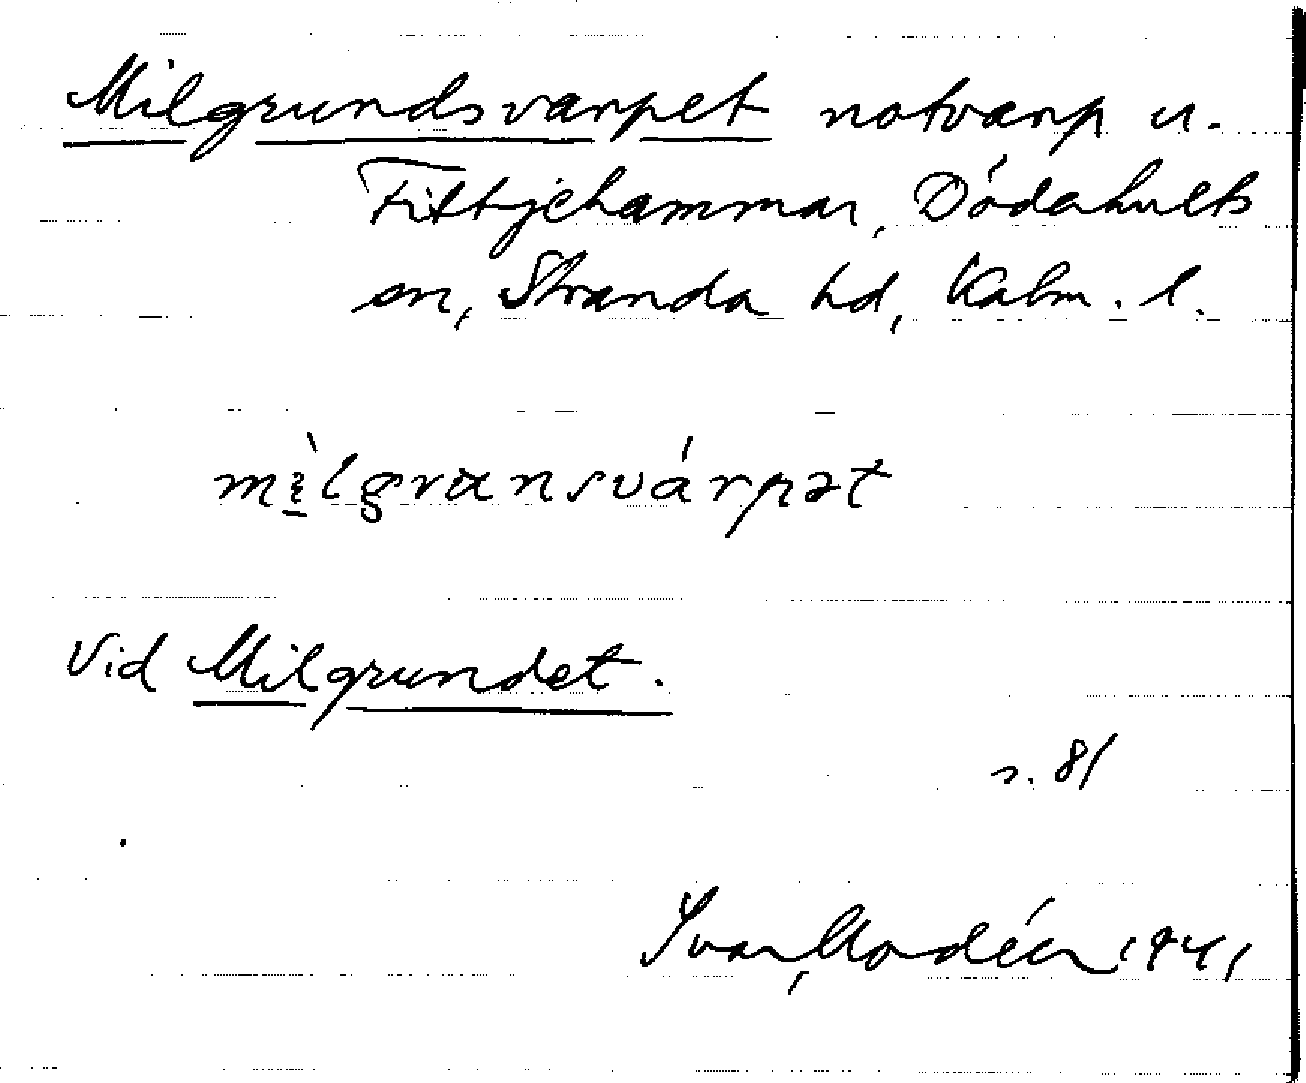 Milgrundsvarpet notvarp u.
Fittjehammar, Döderhults
sn, Stranda hd, Kalm. l.
mìlgransvárpət
Vid Milgrundet.
s. 81
Ivar Modéer 1941